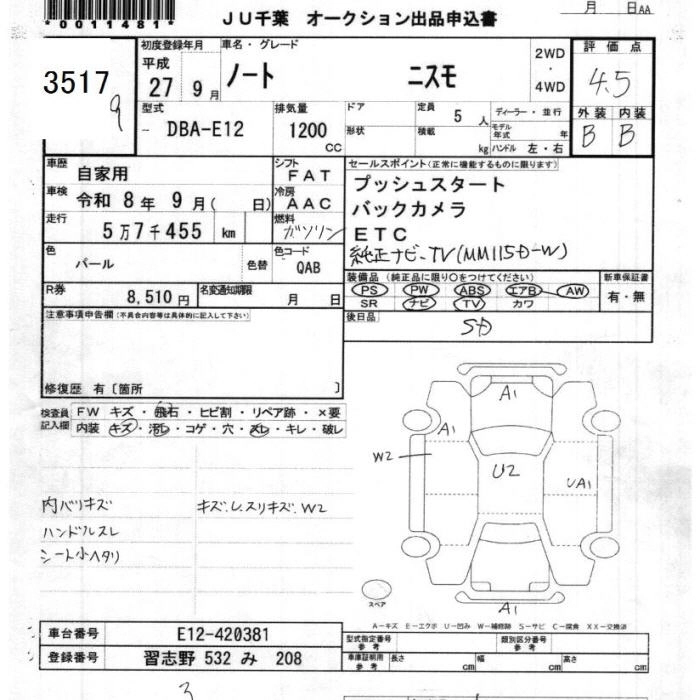 *0011481*
JU千葉 オークション出品申込書
月 日AA
3517
9
初度登録年月
平成
27 9月
車名・グレード
ノート ニスモ
2WD
・
4WD
評価点
4.5
外装 内装
B B
型式
DBA-E12
排気量
1200
CC
ドア
形状
定員 5 人
積載 kg
ディーラー・並行
モデル年式 年
ハンドル 左・右
車歴
自家用
シフト
FAT
車検
令和 8年 9月( 日)
冷房
AAC
走行
5万7千455 km
燃料
ガソリン
色
パール
色替
色コード
QAB
R券
8,510円
名変通知期限
月 日
セールスポイント(正常に機能するものに限ります)
プッシュスタート
バックカメラ
ETC
純正ナビ-TV(MM115D-W)
装備品(純正品に限り○をつけてください)
PS PW ABS エアB AW
SR ナビ TV カワ
新車保証書
有・無
後日品
注意事項申告欄(不具合内容等は具体的に記入して下さい)
修復歴 有〔箇所 〕
検査員記入欄
FW キズ・飛石・ヒビ割・リペア跡・×要
内装 キズ・汚レ・コゲ・穴・スレ・キレ・破レ
内バリキズ
ハンドルスレ
シート小ヘタリ
キズ.U.スリキズ.W2
A1
A1
W2
U2
UA1
A1
スペア
A-キズ E-エクボ U-凹み W-補修跡 S-サビ C-腐食 XX-交換済
車台番号 E12-420381
登録番号 習志野 532 み 208
型式指定番号 参考
類別区分番号 参考
車庫証明用 参考
長さ cm 幅 cm 高さ cm
3